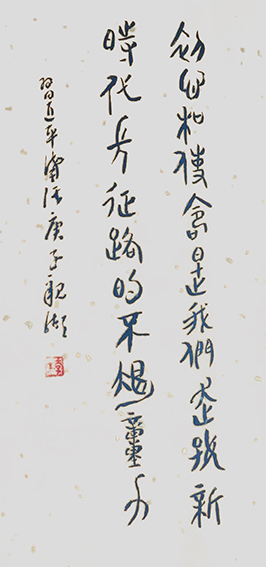 初心和使命是我們走好新
時代長征路的不竭動力
習近平 庚子